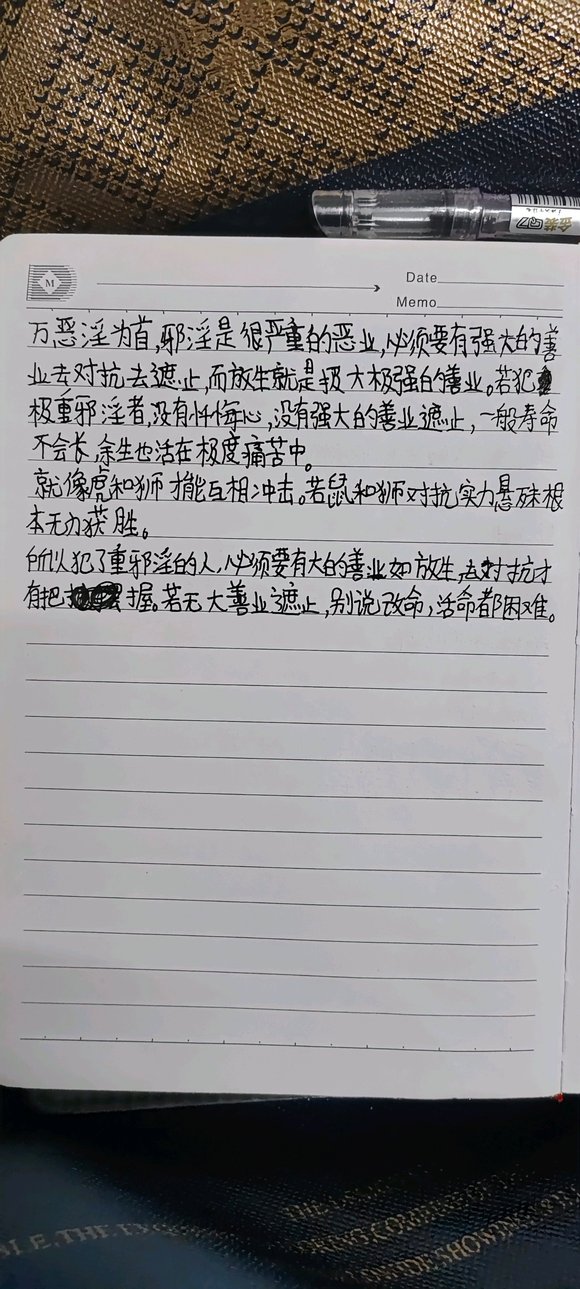 金装 Q7
Date
M
Memo
万恶淫为首,邪淫是很严重的恶业,必须要有强大的善
业去对抗去遮止,而放生就是极大极强的善业。若犯
极重邪淫者,没有忏悔心,没有强大的善业遮止,一般寿命
不会长,余生也活在极度痛苦中。
就像虎和狮才能互相冲击。若鼠和狮对抗实力悬殊根
本无力获胜。
所以犯了重邪淫的人,必须要有大的善业如放生,去对抗才
有把握。若无大善业遮止,别说改命,活命都困难。